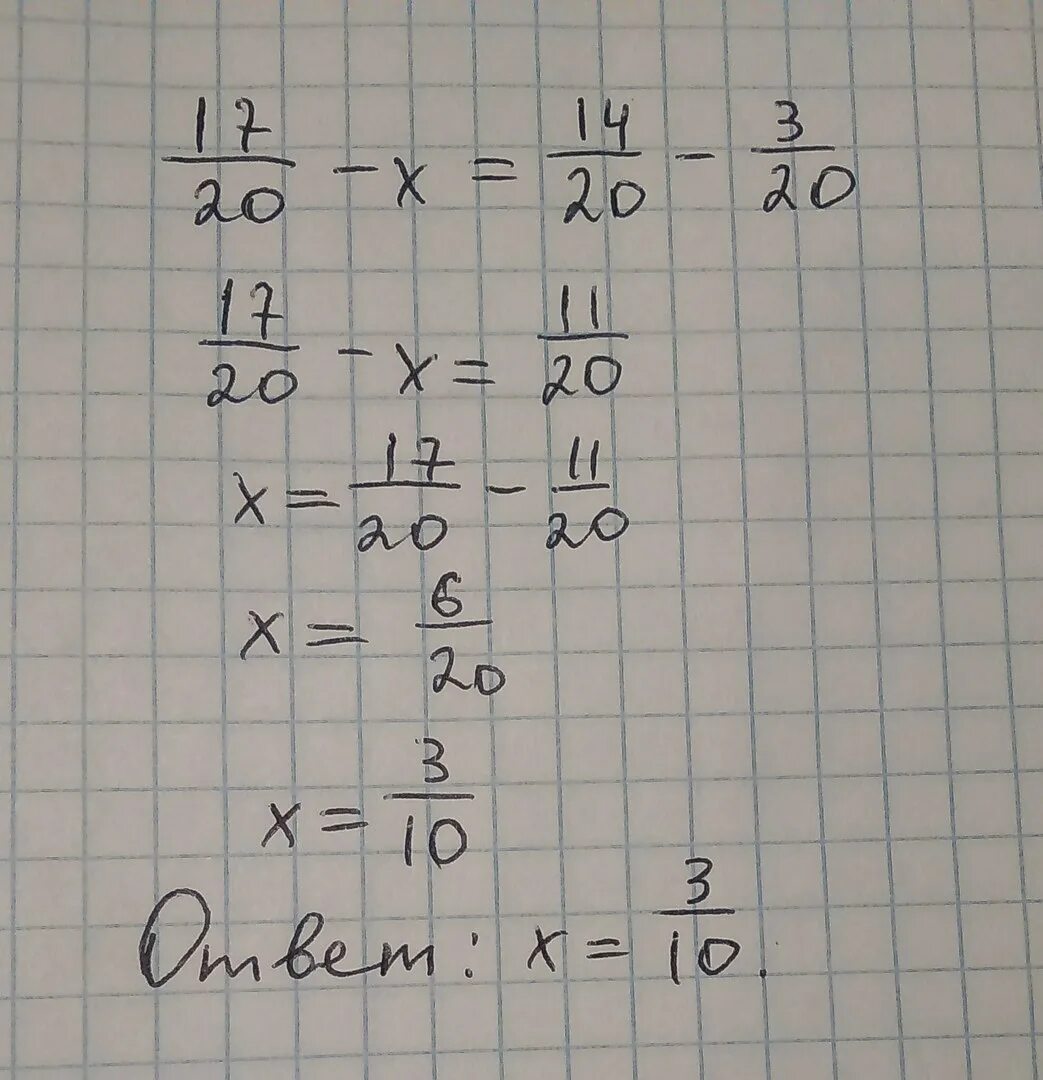 17/20 - x = 14/20 - 3/20
17/20 - x = 11/20
x = 17/20 - 11/20
x = 6/20
x = 3/10
Ответ: x = 3/10.